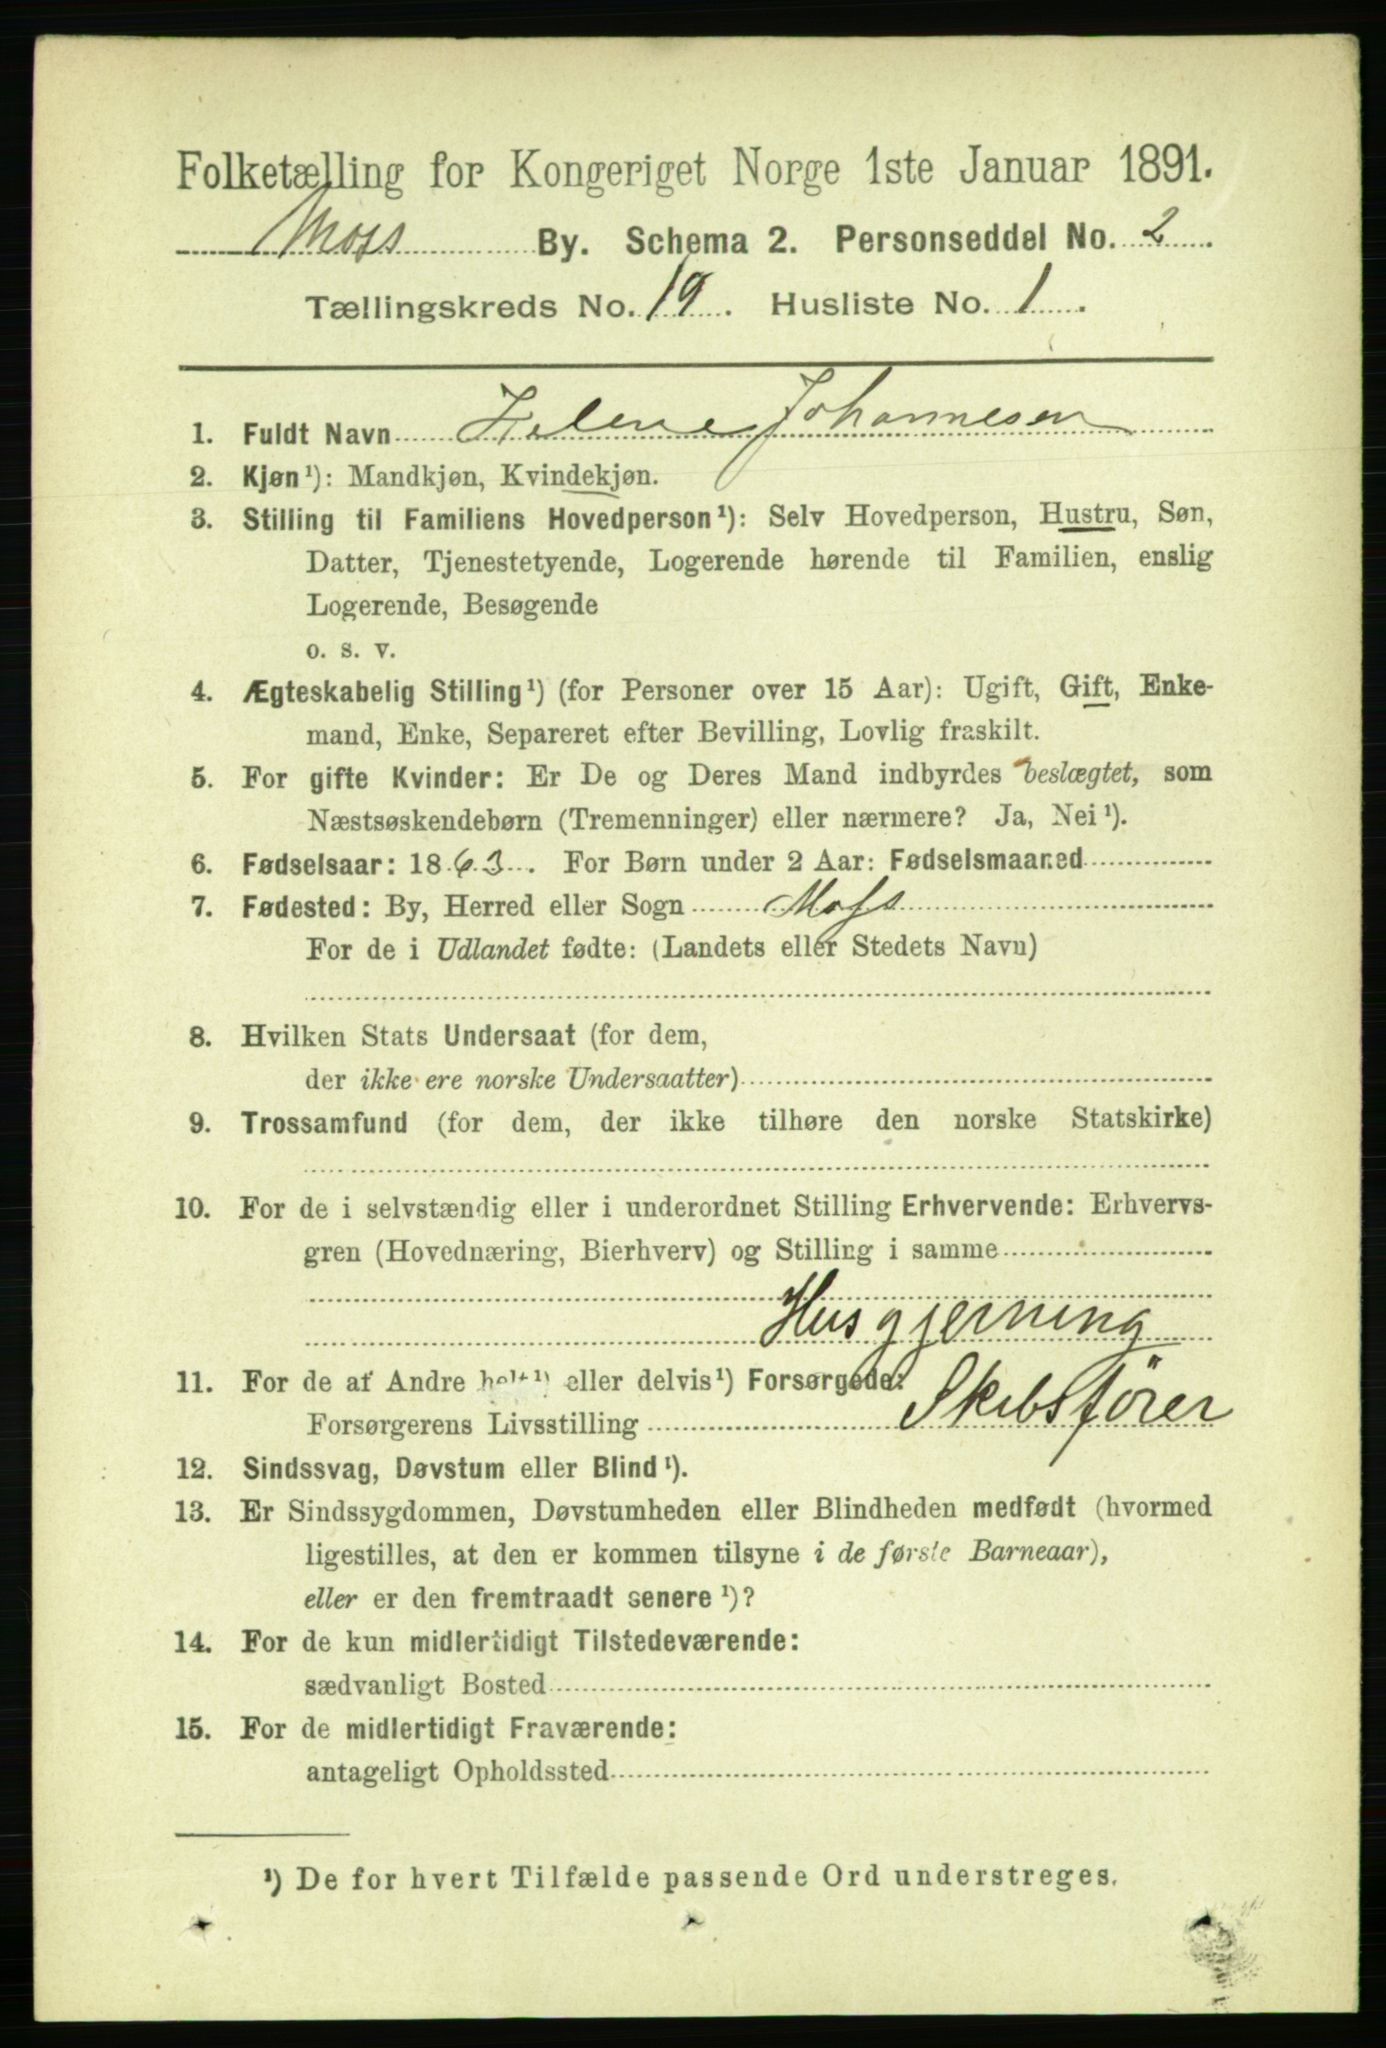 Folketælling for Kongeriget Norge 1ste Januar 1891.
Moss By. Schema 2. Personseddel No. 2
Tællingskreds No. 19. Husliste No. 1.
1. Fuldt Navn Helene Johannesen
2. Kjøn¹): Mandkjøn, Kvindekjøn.
3. Stilling til Familiens Hovedperson¹): Selv Hovedperson, Hustru, Søn,
Datter, Tjenestetyende, Logerende hørende til Familien, enslig
Logerende, Besøgende
o. s. v.
4. Ægteskabelig Stilling¹) (for Personer over 15 Aar): Ugift, Gift, Enke-
mand, Enke, Separeret efter Bevilling, Lovlig fraskilt.
5. For gifte Kvinder: Er De og Deres Mand indbyrdes beslægtet, som
Næstsøskendebørn (Tremenninger) eller nærmere? Ja, Nei¹).
6. Fødselsaar: 1863. For Børn under 2 Aar: Fødselsmaaned
7. Fødested: By, Herred eller Sogn Moss
For de i Udlandet fødte: (Landets eller Stedets Navn)
8. Hvilken Stats Undersaat (for dem,
der ikke ere norske Undersaatter)
9. Trossamfund (for dem, der ikke tilhøre den norske Statskirke)
10. For de i selvstændig eller i underordnet Stilling Erhvervende: Erhvervs-
gren (Hovednæring, Bierhverv) og Stilling i samme
Husgjerning
11. For de af Andre helt¹) eller delvis¹) Forsørgede:
Forsørgerens Livsstilling Skibsfører
12. Sindssvag, Døvstum eller Blind¹).
13. Er Sindssygdommen, Døvstumheden eller Blindheden medfødt (hvormed
ligestilles, at den er kommen tilsyne i de første Barneaar),
eller er den fremtraadt senere¹)?
14. For de kun midlertidigt Tilstedeværende:
sædvanligt Bosted
15. For de midlertidigt Fraværende:
antageligt Opholdssted
¹) De for hvert Tilfælde passende Ord understreges.